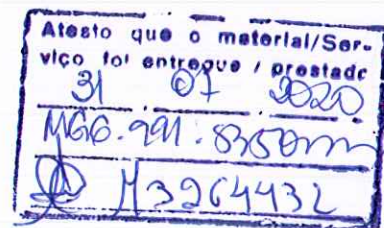 Atesto que o material/Ser-
viço foi entregue / prestado
31 07 2020
M3264432